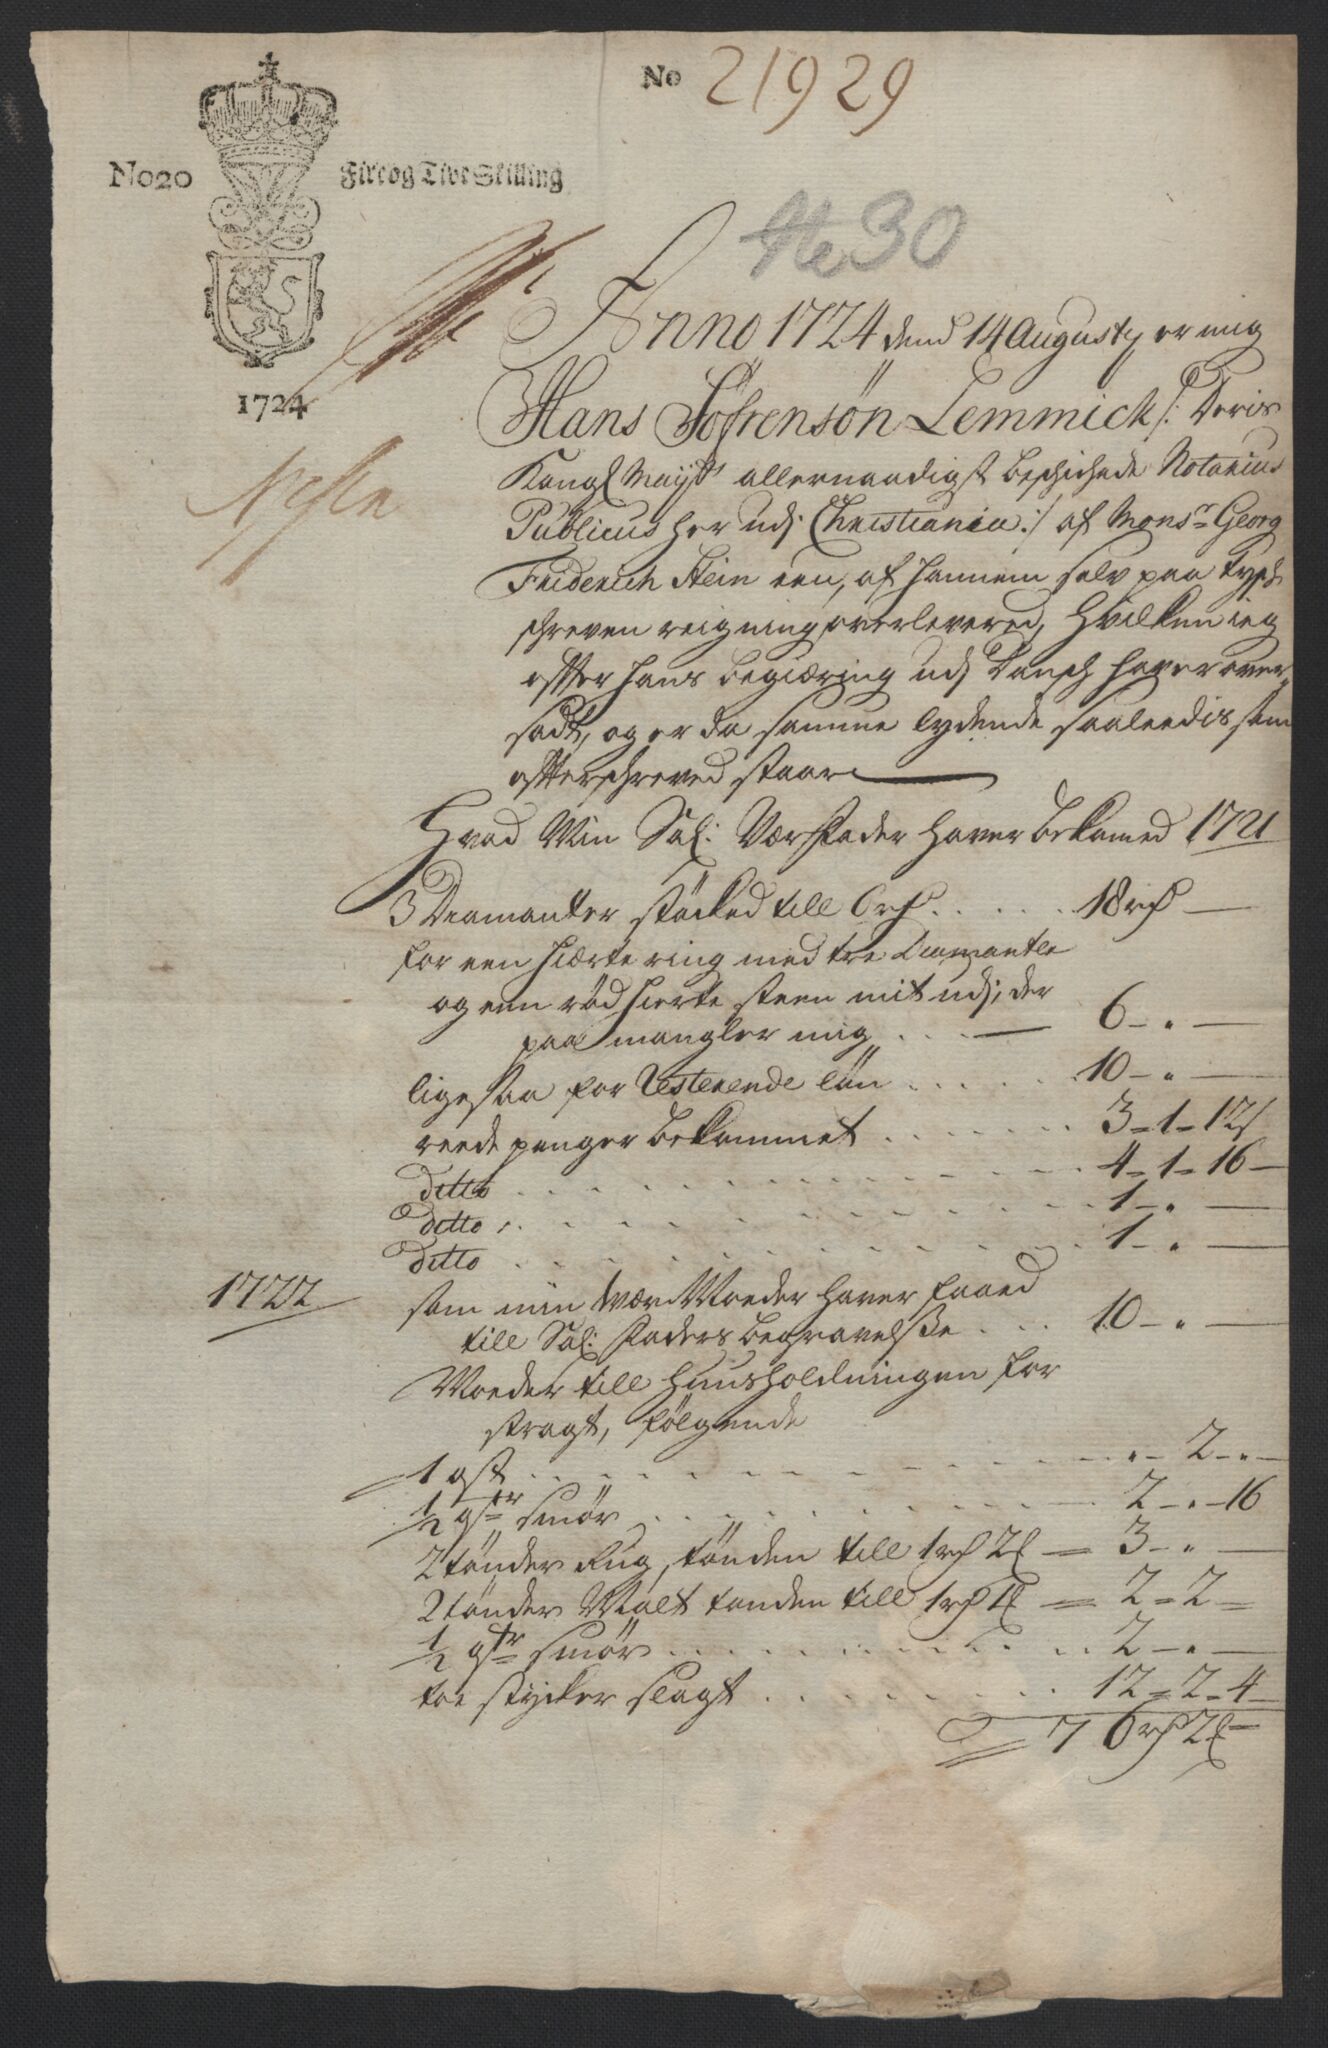 No 21929
No 20 Fire og Tive Skilling
No 30
1724
Anno 1724 dend 14 Augusty er mig
Hans Söfrensön Lemmich /: Deris
Kongl Mayts allernaadigst beskichede Notarius
Publicus her udj Christiania :/ af Monsr Georg
Friderich Stein een, af hannem selv paa tydsk
schreven reigning overlevered, Hvilken ieg
effter hans begiæring udj Dansch haver over-
sadt, og er da samme lydende saaleedis som
effterschreved staar
Hvad Min Sal: Værfader haver bekomed 1721
3 Diamanter stöcked till 6 rd . . . . . 18 rd —
for een hierte ring med tre Diamanter
og een rød hierte steen mit udj, der
paa mangler mig . . . 6 - " -
ligesaa for Resterende lön . . . . . 10 - " -
reede penger bekommet . . . . . 3 - 1 - 12 s
ditto . . . . . 4 - 1 - 16 -
ditto . . . . . 1 - " -
ditto . . . . . 1 - " -
1722
som min Vær Moeder haver faaed
till Sal: Faders begravelsße . . . 10 - " -
Moeder till Huusholdningen for
stragt, følgende
1 . . . . . " - 2 - " -
1/2 smör . . . . . 2 - " - 16
2 tönder Rug, tönden till 1 rd 2 = 3 - " -
2 tönder Malt tonden till 1 rd 1 = 2 = 2 =
1/2 smör . . . . . 2 - " -
toe stycker slagt . . . . . 12 = 2 - 4
76 rd 2